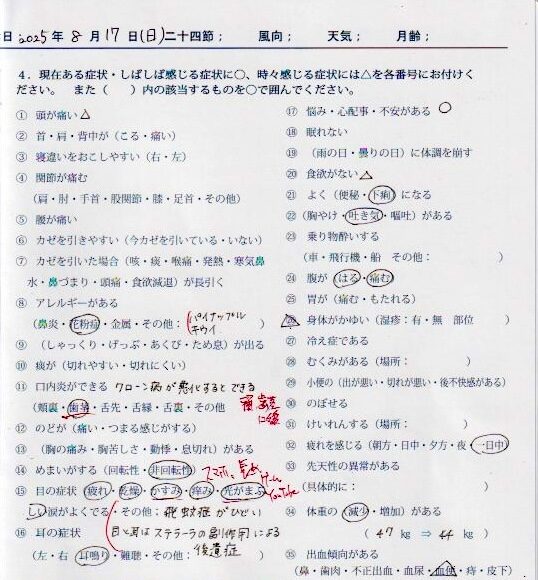 日 2025年 8月 17日(日)二十四節; 風向; 天気; 月齢;
4．現在ある症状・しばしば感じる症状に○、時々感じる症状には△を各番号にお付けく
ださい。 また（ ）内の該当するものを○で囲んでください。
① 頭が痛い △
② 首・肩・背中が（こる・痛い）
③ 寝違いをおこしやすい（右・左）
④ 関節が痛む
（肩・肘・手首・股関節・膝・足首・その他）
⑤ 腹が痛い
⑥ カゼを引きやすい（今カゼを引いている・いない）
⑦ カゼを引いた場合（咳・痰・喉痛・発熱・寒気鼻
水・鼻づまり・頭痛・食欲減退）が長引く
⑧ アレルギーがある
（鼻炎・花粉症・金属・その他： パイナップル
キウイ ）
⑨ （しゃっくり・げっぷ・あくび・ため息）が出る
⑩ 痰が（切れやすい・切れにくい）
⑪ 口内炎ができる クローン病が悪化するとできる
（頬裏・歯茎・舌先・舌縁・舌裏・その他
⑫ のどが（痛い・つまる感じがする）
⑬ （胸の痛み・胸苦しさ・動悸・息切れ）がある
⑭ めまいがする（回転性・非回転性） スマホ、
ゲーム
YouTube
⑮ 目の症状（疲れ・乾燥・かすみ・痒み・光がまぶ
しい涙がよくでる・その他： 飛蚊症がひどい
⑯ 耳の症状 目と耳はステラーラの副作用による
（左・右 耳鳴り・難聴・その他： 後遺症 ）
⑰ 悩み・心配事・不安がある ○
⑱ 眠れない
⑲ （雨の日・曇りの日）に体調を崩す
⑳ 食欲がない △
㉑ よく（便秘・下痢）になる
㉒（胸やけ・吐き気・嘔吐）がある
㉓ 乗り物酔いする
（車・飛行機・船 その他： ）
㉔ 腹が（はる・痛む）
㉕ 胃が（痛む・もたれる）
㉖ 身体がかゆい（湿疹：有・無 部位 ）
㉗ 冷え症である
㉘ むくみがある（場所： ）
㉙ 小便の（出が悪い・切れが悪い・後不快感がある）
㉚ のぼせる
㉛ けいれんする（場所： ）
㉜ 疲れを感じる（朝方・日中・夕方・夜・一日中）
㉝ 先天性の異常がある
（具体的に： ）
㉞ 体重の（減少・増加）がある
（ 47 kg ⇒ 44 kg ）
㉟ 出血傾向がある
（鼻・歯肉・不正出血・血尿・血便・痔・皮下）